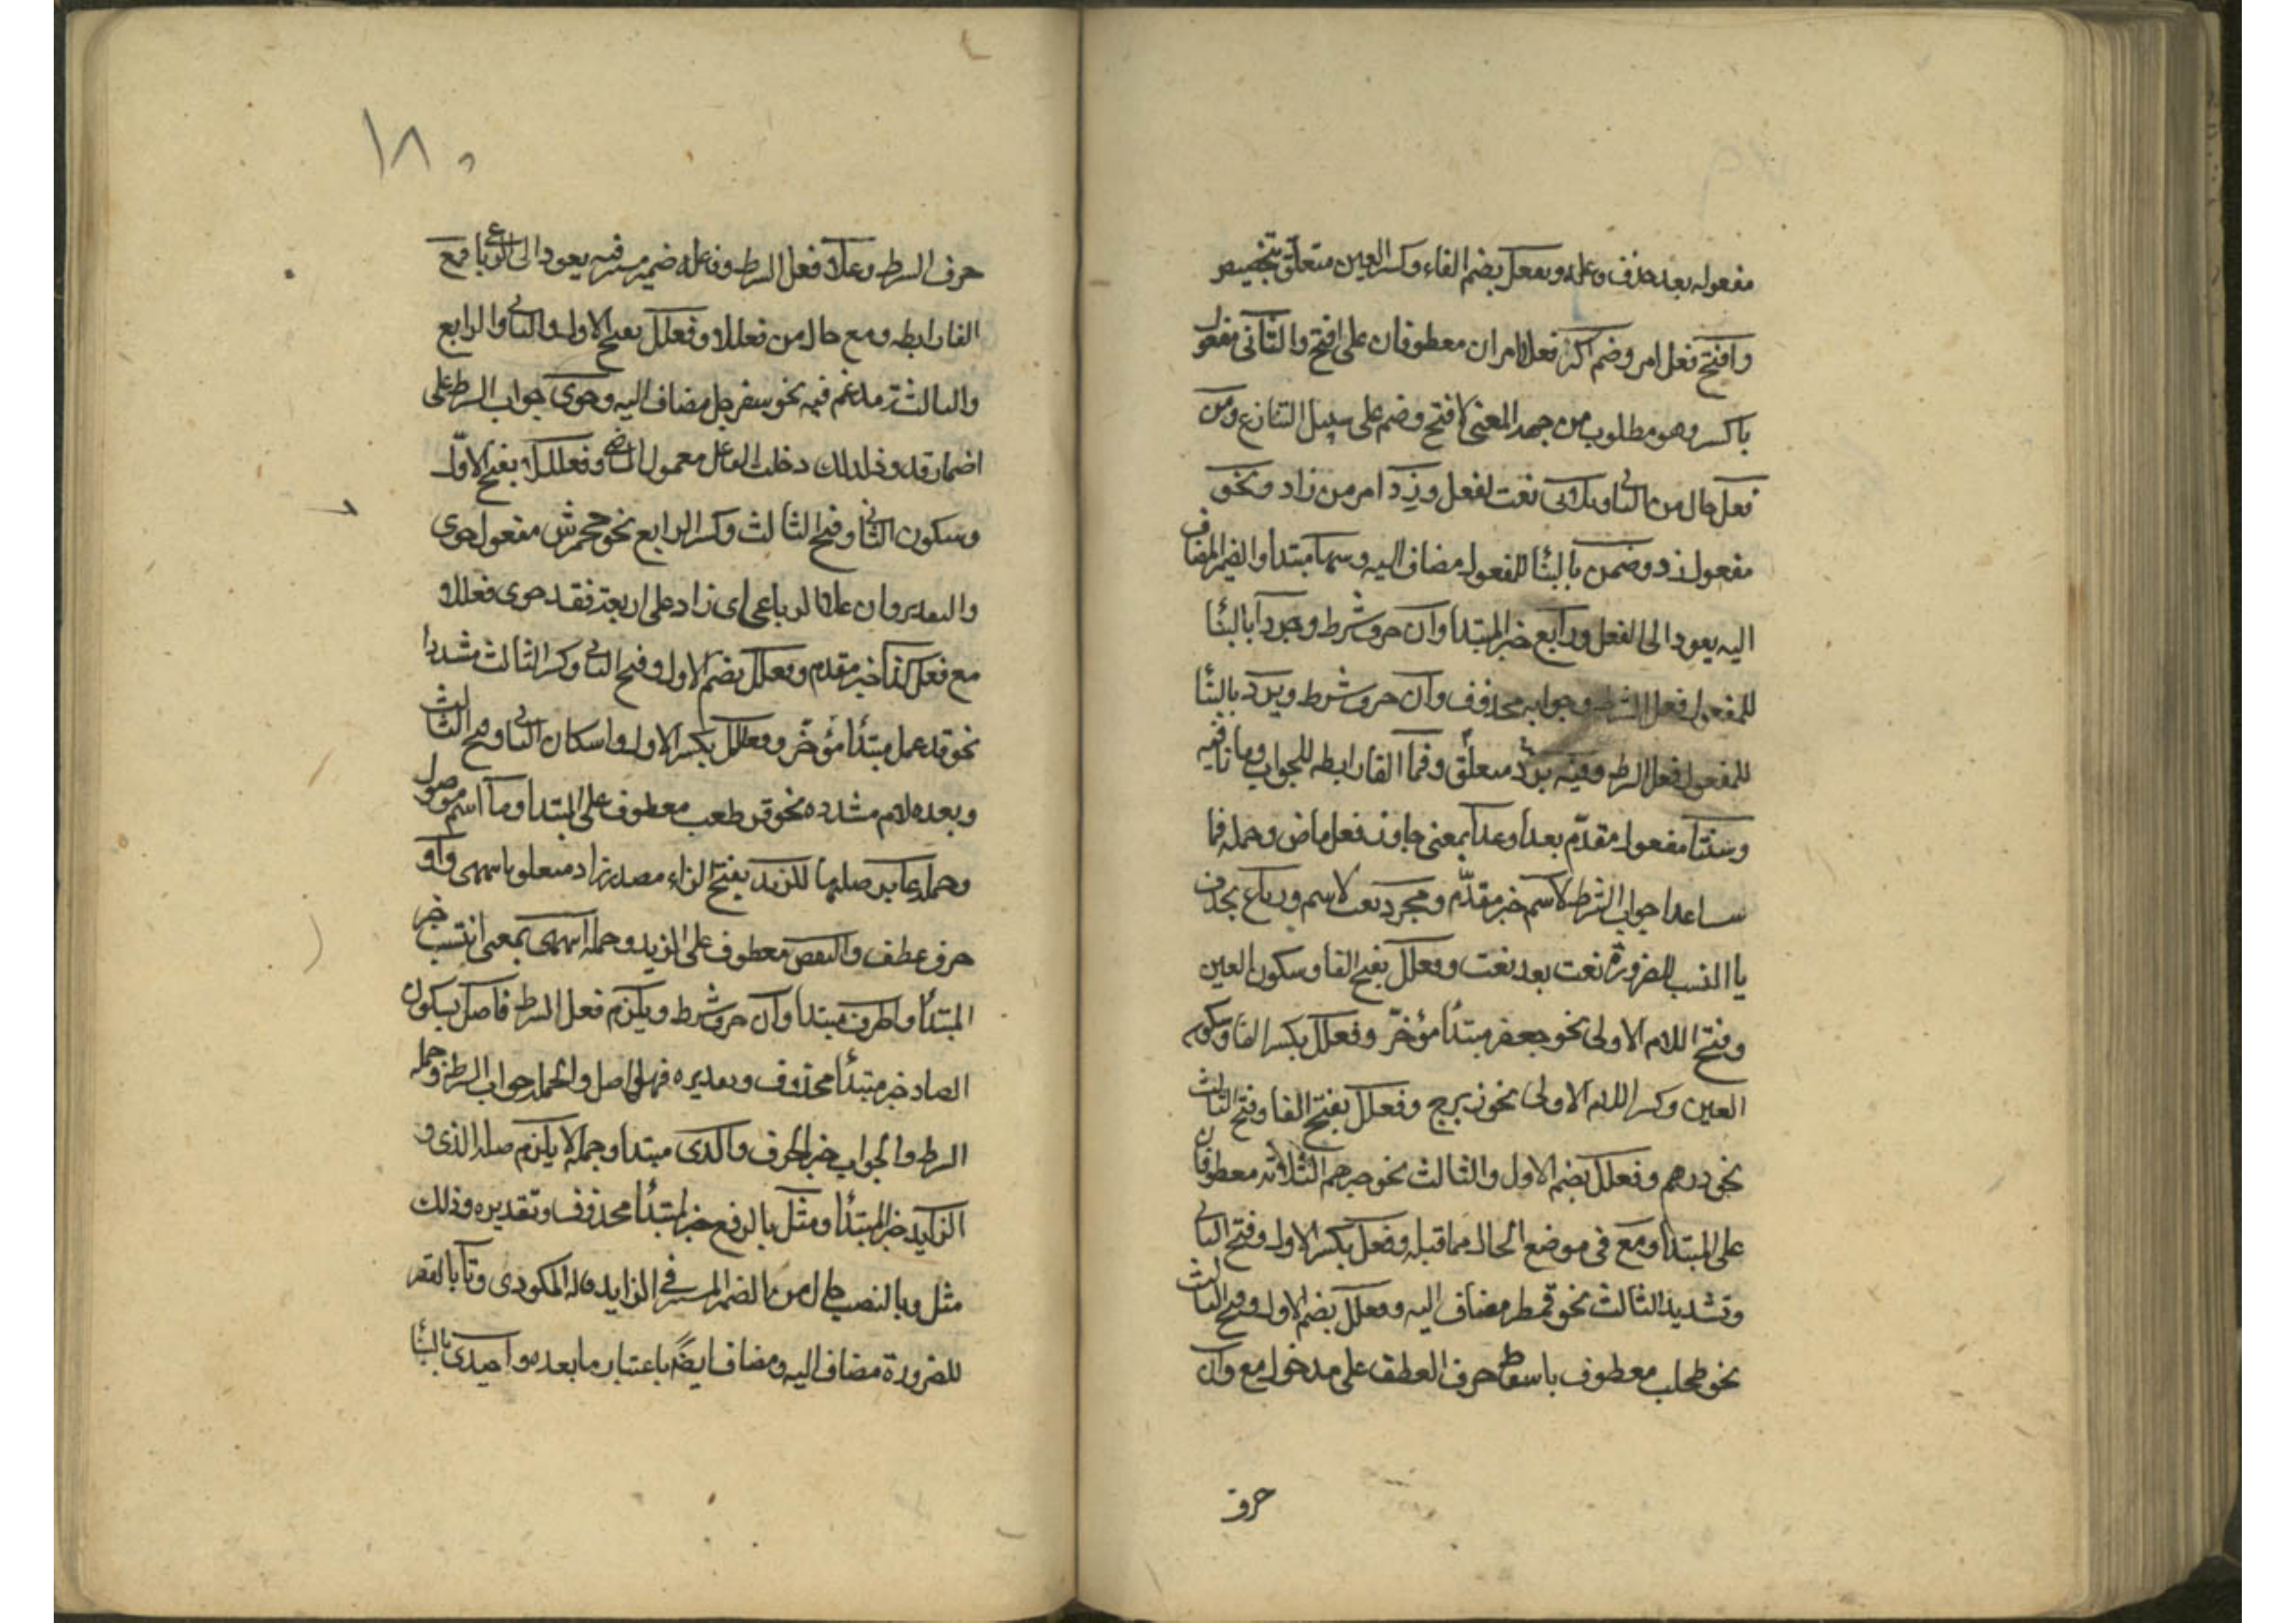 مفعوله بعد حذف فاعله وبفعل بضم الفاء وكسر العين متعلق بتخصيص
وافتح فعل امر وضم اكسر فعلا امران معطوفان على افتح والثاني مفعول
باكسر وهو مطلوب من جهة المعنى لافتح وضم على سبيل التنازع ومن
فعل حال من الثاني وثلاثي نعت لفعل وزد امر من زاد ونحو
مفعول زد وضمن بالبنا للمفعول مضاف اليه ومنتهاه مبتدأ والضمير المضاف
اليه يعود الى الفعل ورابع خبر المبتدا وان حرف شرط وجردا بالبنا
للمفعول فعل الشرط وجوابه محذوف وان حرف شرط ويزد بالبنا
للمفعول فعل الشرط وفيه بزد متعلق وفما الفا رابطه للجواب وما نافيه
وستا مفعول مقدم بعدا وعدا بمعنى جاوز فعل ماض وجمله فما
ستا عدا جواب الشرط لاسم خبر مقدم ومجرد نعت لاسم ورباع بحذف
يا النسب للضرورة نعت بعد نعت وفعلل بفتح الفا وسكون العين
وفتح اللام الاولى نحو جعفر مبتدأ مؤخر وفعلل بكسر الفا وسكون
العين وكسر اللام الاولى نحو زبرج وفعلل بفتح الفا وفتح الثالث
نحو درهم وفعلل بضم الاول والثالث نحو جرهم الثلاثة معطوفان
على المبتدا ومع في موضع الحال مما قبله وفعل بكسر الاول وفتح الثاني
وتشديد الثالث نحو قمطر مضاف اليه وفعلل بضم الاول وفتح الثالث
نحو طحلب معطوف باسقاط حرف العطف على مدخول مع وان
حرف
١٨٠
حرف الشرط وعلا فعل الشرط وفاعله ضمير مستتر فيه يعود الى الرباعي فمع
الفا رابطه ومع حال من فعللا وفعلل بفتح الاول والثاني والرابع
والثالث مدغم فيه نحو سفرجل مضاف اليه وحوى جواب الشرط على
اضمار قد ولذلك دخلت الفا على معمول الماضي وفعللا بفتح الاول
وسكون الثاني وفتح الثالث وكسر الرابع نحو جحمرش مفعول حوى
والتقدير وان علا الرباعي اي زاد على اربعة فقد حوى فعللا
مع فعلل كذا خبر مقدم وفعلل بضم الاول وفتح الثاني وكسر الثالث مشددا
نحو قذعمل مبتدأ مؤخر وفعلل بكسر الاول واسكان الثاني وفتح الثالث
وبعده لام مشدده نحو قرطعب معطوف على المبتدا وما اسم موصول
وجمله غاير صلتها للزيد بفتح الزاء مصدر زاد متعلق بانتمى واو
حرف عطف والنقص معطوف على الزيد وجمله انتمى بمعنى انتسب خبر
المبتدأ والحرف مبتدا وان حرف شرط ويلزم فعل الشرط فاصل بسكون
الصاد خبر مبتدأ محذوف وتقديره فهو اصل والجمله جواب الشرط وجمله
الشرط والجواب خبر الحرف والذي مبتدا وجمله لا يلزم صله الذي و
الزايد خبر المبتدأ ومثل بالرفع خبر لمبتدأ محذوف وتقديره وذلك
مثل وبالنصب حال من الضمير المستتر في الزايد قاله المكودي وتا بالقصر
للضرورة مضاف اليه ومضاف ايضا باعتبار ما بعده واحتذي بالبنا